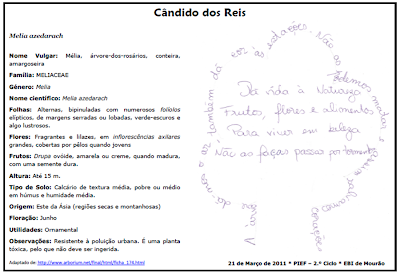 Cândido dos Reis
Melia azedarach
Nome Vulgar: Mélia, árvore-dos-rosários, conteira, amargoseira
Família: MELIACEAE
Género: Melia
Nome científico: Melia azedarach
Folhas: Alternas, bipinuladas com numerosos folíolos elípticos, de margens serradas ou lobadas, verde-escuros e algo lustrosos.
Flores: Fragrantes e lilazes, em inflorescências axilares grandes, cobertas por pêlos quando jovens
Frutos: Drupa ovóide, amarela ou creme, quando madura, com uma semente dura.
Altura: Até 15 m.
Tipo de Solo: Calcário de textura média, pobre ou médio em húmus e humidade média.
Origem: Este da Ásia (regiões secas e montanhosas)
Floração: Junho
Utilidades: Ornamental
Observações: Resistente à poluição urbana. É uma planta tóxica, pelo que não deve ser ingerida.
Adaptado de: http://www.arborium.net/final/html/ficha_174.html
dá cor às estações Não as podemos matar
Dá vida à Natureza
Frutos, flores e alimentos
Para viver em beleza
Não as faças passar por tormentos
21 de Março de 2011 * PIEF – 2.º Ciclo * EBI de Mourão